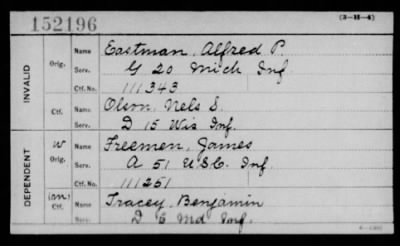 152196
(3-H-4)
INVALID
Orig.
Name Eastman, Alfred P.
Serv. G 20 Mich Inf
Ctf. No. 111343
Ctf.
Name Olson, Nels S.
Serv. D 15 Wis Inf.
DEPENDENT
W
Orig.
Name Freemen, James
Serv. A 51 U.S.C. Inf
Ctf. No. 111251
(on)
Ctf.
Name Tracey, Benjamin
Serv. D 6 Md Inf.